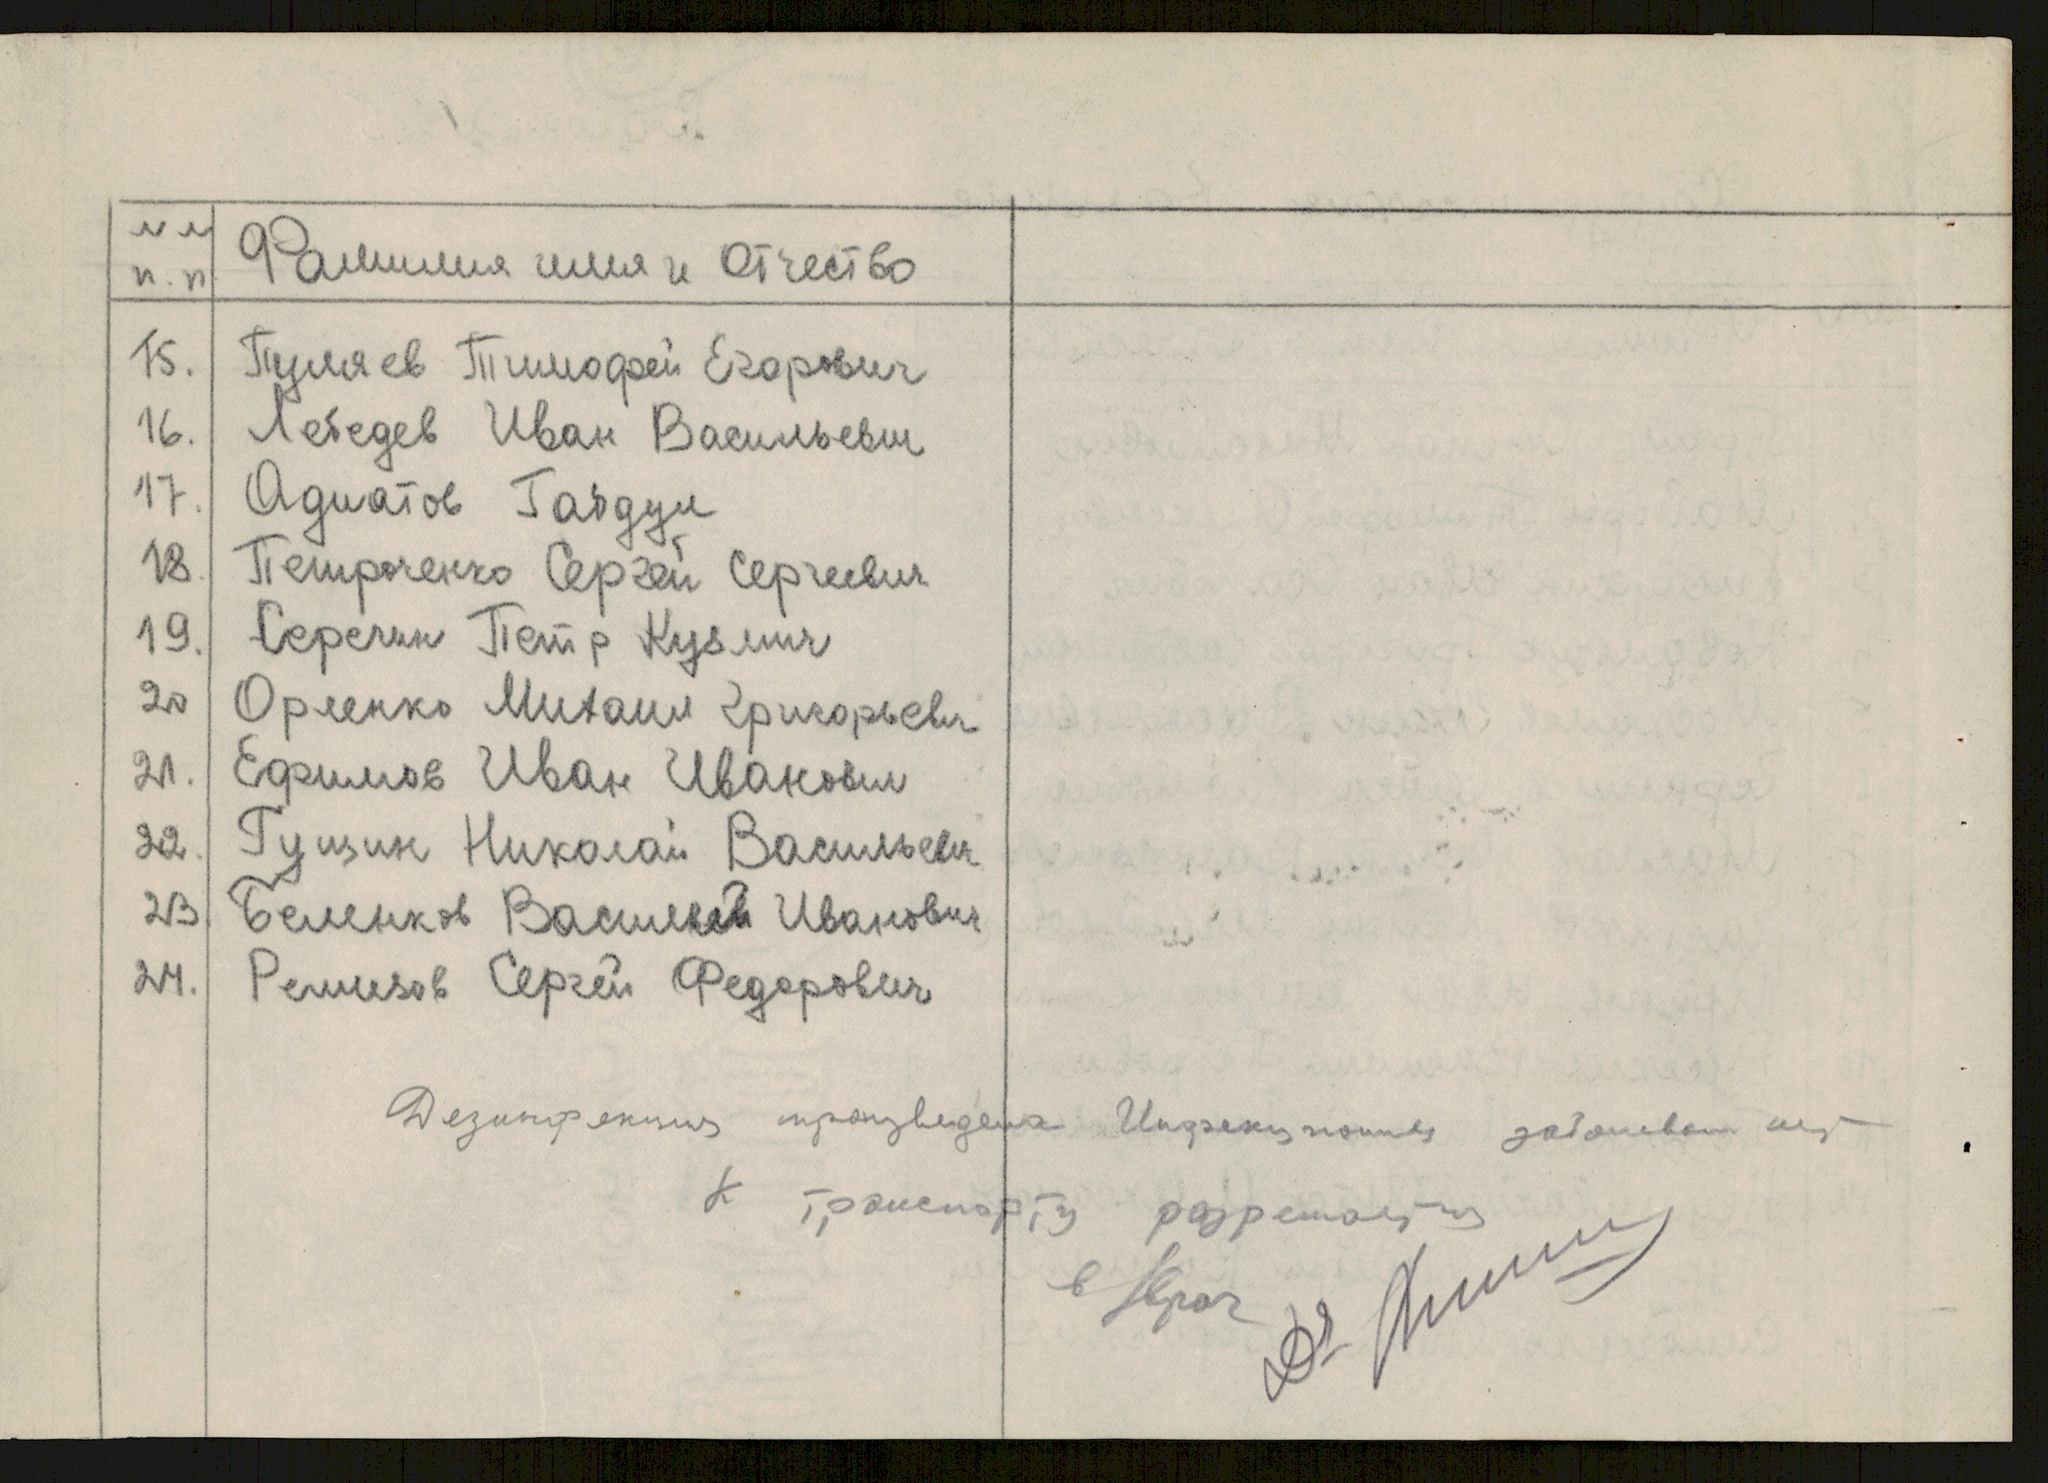 № №
п.п Фамилия имя и Отчество
15. Пуляев Тимофей Егорович
16. Лебедев Иван Васильевич
17. Адиатов Габдул
18. Петроченко Сергей Сергеевич
19. Серечин Петр Кузмич
20 Орленко Михаил Григорьевич
21. Ефимов Иван Иванович
22. Гущин Николай Васильевич
23 Беленков Василий Иванович
24. Ремизов Сергей Федорович
Дезинфекция произведена Инфекционных заболеван нет
К транспорту разрешается
Врач
Dr